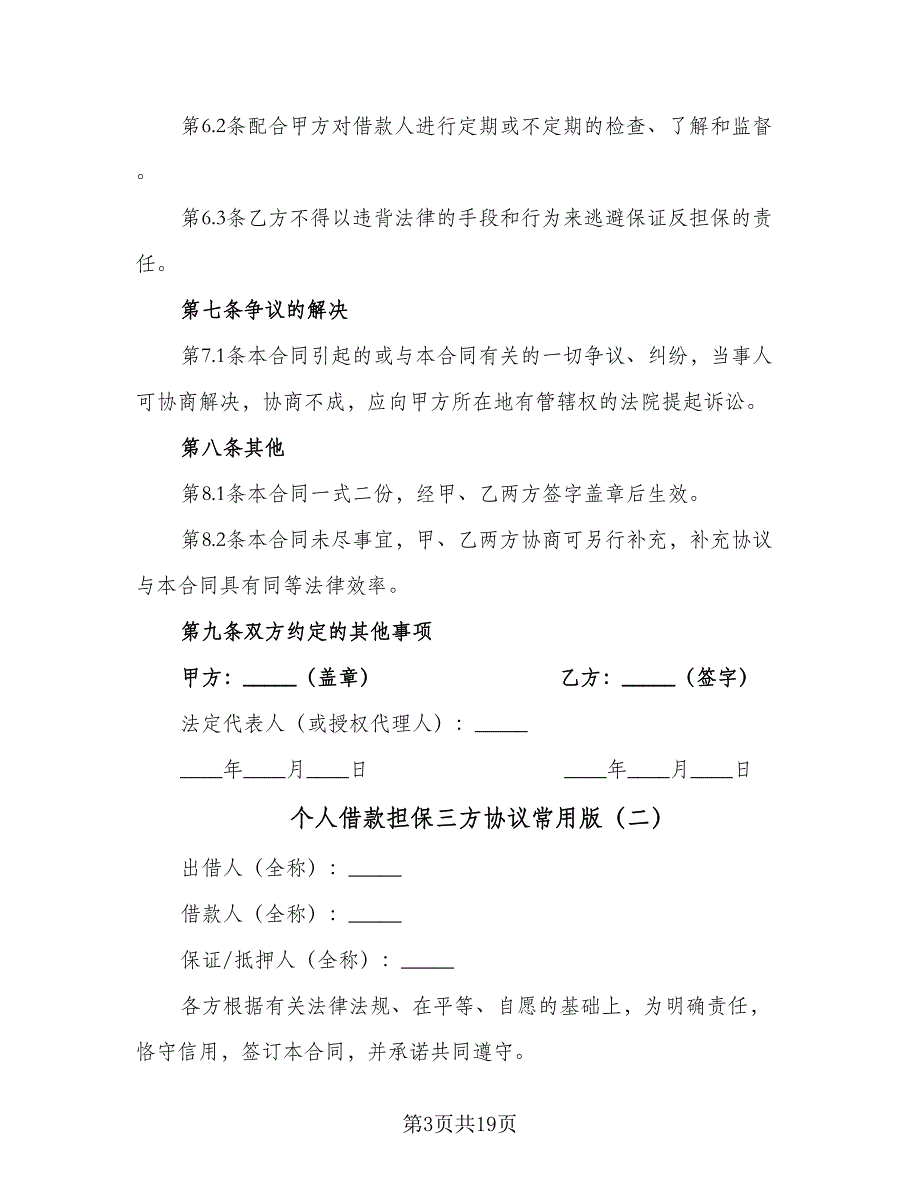 第6.2条配合甲方对借款人进行定期或不定期的检查、了解和监督
。
第6.3条乙方不得以违背法律的手段和行为来逃避保证反担保的责
任。
第七条争议的解决
第7.1条本合同引起的或与本合同有关的一切争议、纠纷，当事人
可协商解决，协商不成，应向甲方所在地有管辖权的法院提起诉讼。
第八条其他
第8.1条本合同一式二份，经甲、乙两方签字盖章后生效。
第8.2条本合同未尽事宜，甲、乙两方协商可另行补充，补充协议
与本合同具有同等法律效率。
第九条双方约定的其他事项
甲方：_____（盖章） 乙方：_____（签字）
法定代表人（或授权代理人）：_____
____年____月____日 ____年____月____日
个人借款担保三方协议常用版（二）
出借人（全称）：_____
借款人（全称）：_____
保证/抵押人（全称）：_____
各方根据有关法律法规、在平等、自愿的基础上，为明确责任，
恪守信用，签订本合同，并承诺共同遵守。
第3页共19页